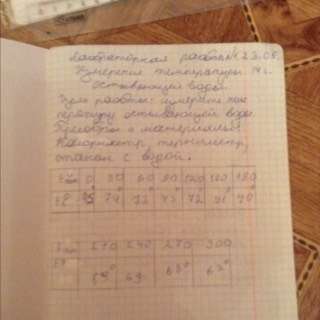 Лабораторная работа №1 23.05.
Измерение температуры
остывающей воды.
Цель работы: измерить тем
пературу остывающей воды
Приборы и материалы:
Калориметр, термометр,
стакан с водой.
0 30 60 90 120 150 180
75 74 73 73 72 71 70
210 240 270 300
69° 69 68° 67°